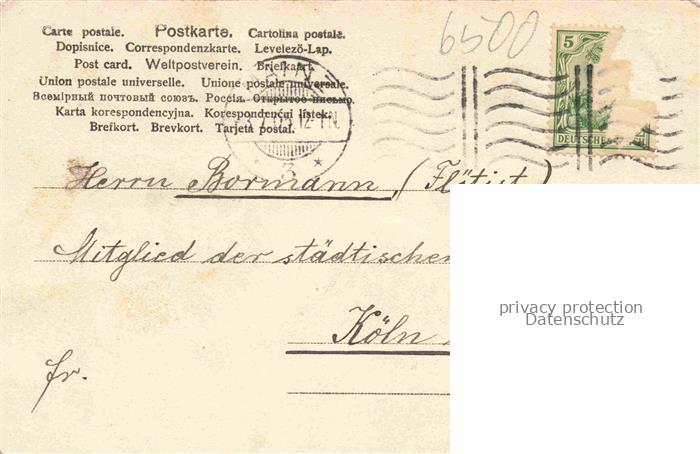 Carte postale. Postkarte. Cartolina postale.
Dopisnice. Correspondenzkarte. Levelező-Lap.
Post card. Weltpostverein. Briefkaart.
Union postale universelle. Unione postale universale.
Всемірный почтовый союзъ. Россія. Открытое письмо.
Karta korespondencyjna. Korespondenční lístek.
Brefkort. Brevkort. Tarjeta postal.
6500
5
DEUTSCHES
MAINZ
12-1N.
* 3 *
Herrn Bormann, (Flötist)
Mitglied der städtischen
privacy protection
Datenschutz
Köln
fr.